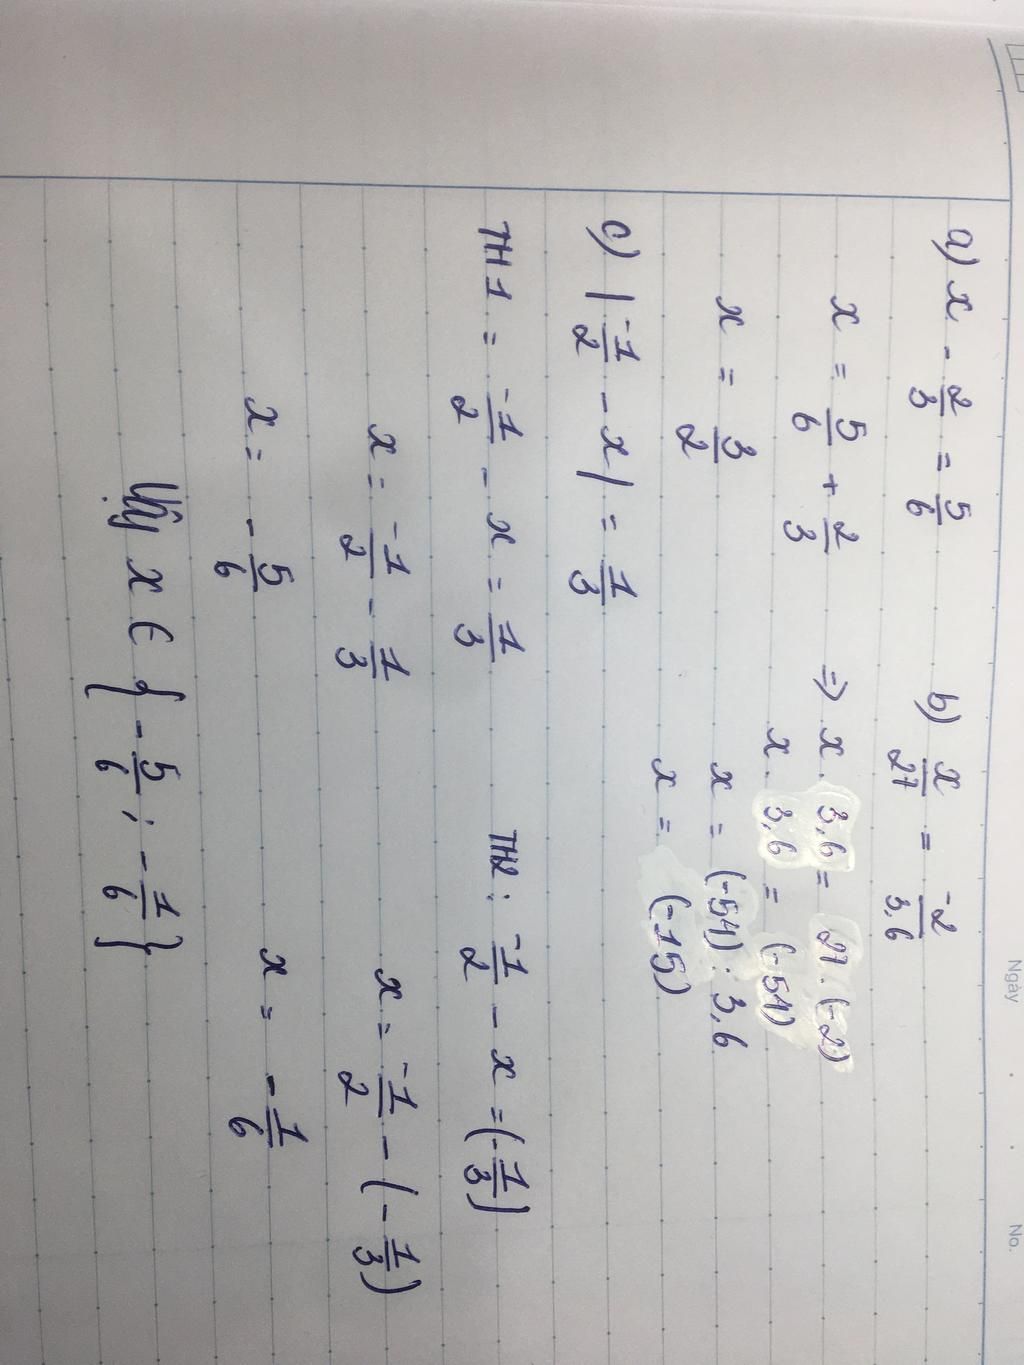 Ngày No.
a) x - 2/3 = 5/6
x = 5/6 + 2/3
x = 3/2
b) x/27 = -2/3,6
=> x . 3,6 = 27 . (-2)
x . 3,6 = (-54)
x = (-54) : 3,6
x = (-15)
c) | -1/2 - x | = 1/3
TH1 = -1/2 - x = 1/3
x = -1/2 - 1/3
x = - 5/6
TH2 : -1/2 - x = (- 1/3)
x = -1/2 - (- 1/3)
x = - 1/6
Vậy x ∈ { - 5/6 ; - 1/6 }